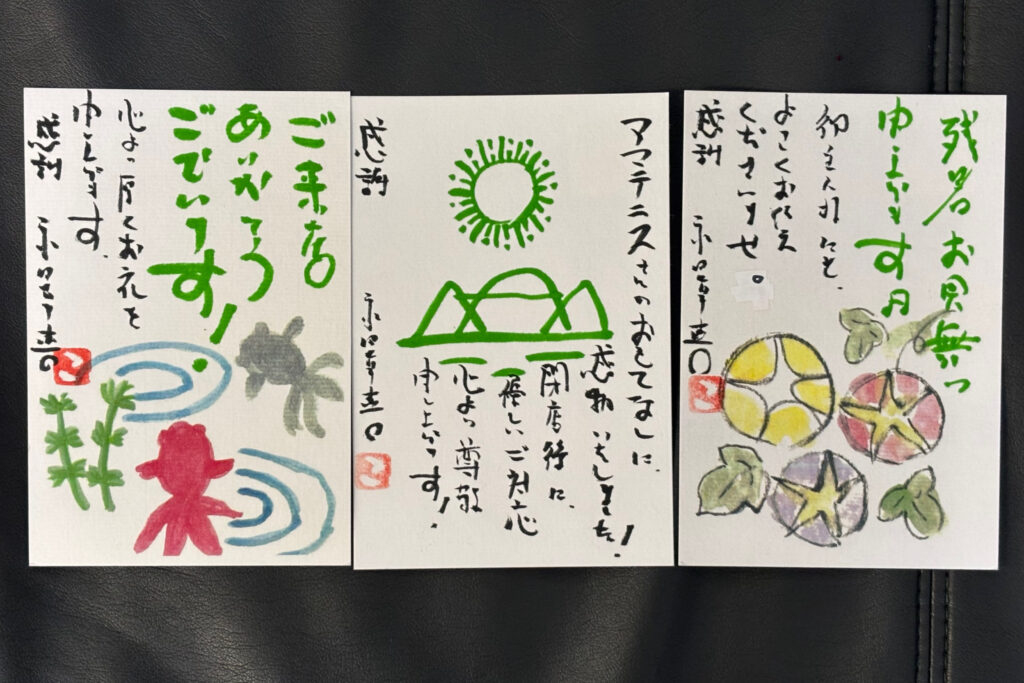 ご来店
ありがとう
ございます!
心より厚くお礼を
申し上げます。
感謝
アマテニスさんのおもてなしに、
感動いたしました!
閉店時に、
優しいご対応
心より尊敬
申し上げます!
感謝
残暑お見舞い
申し上げます
御主人様にも、
よろしくお伝え
くださいませ。
感謝